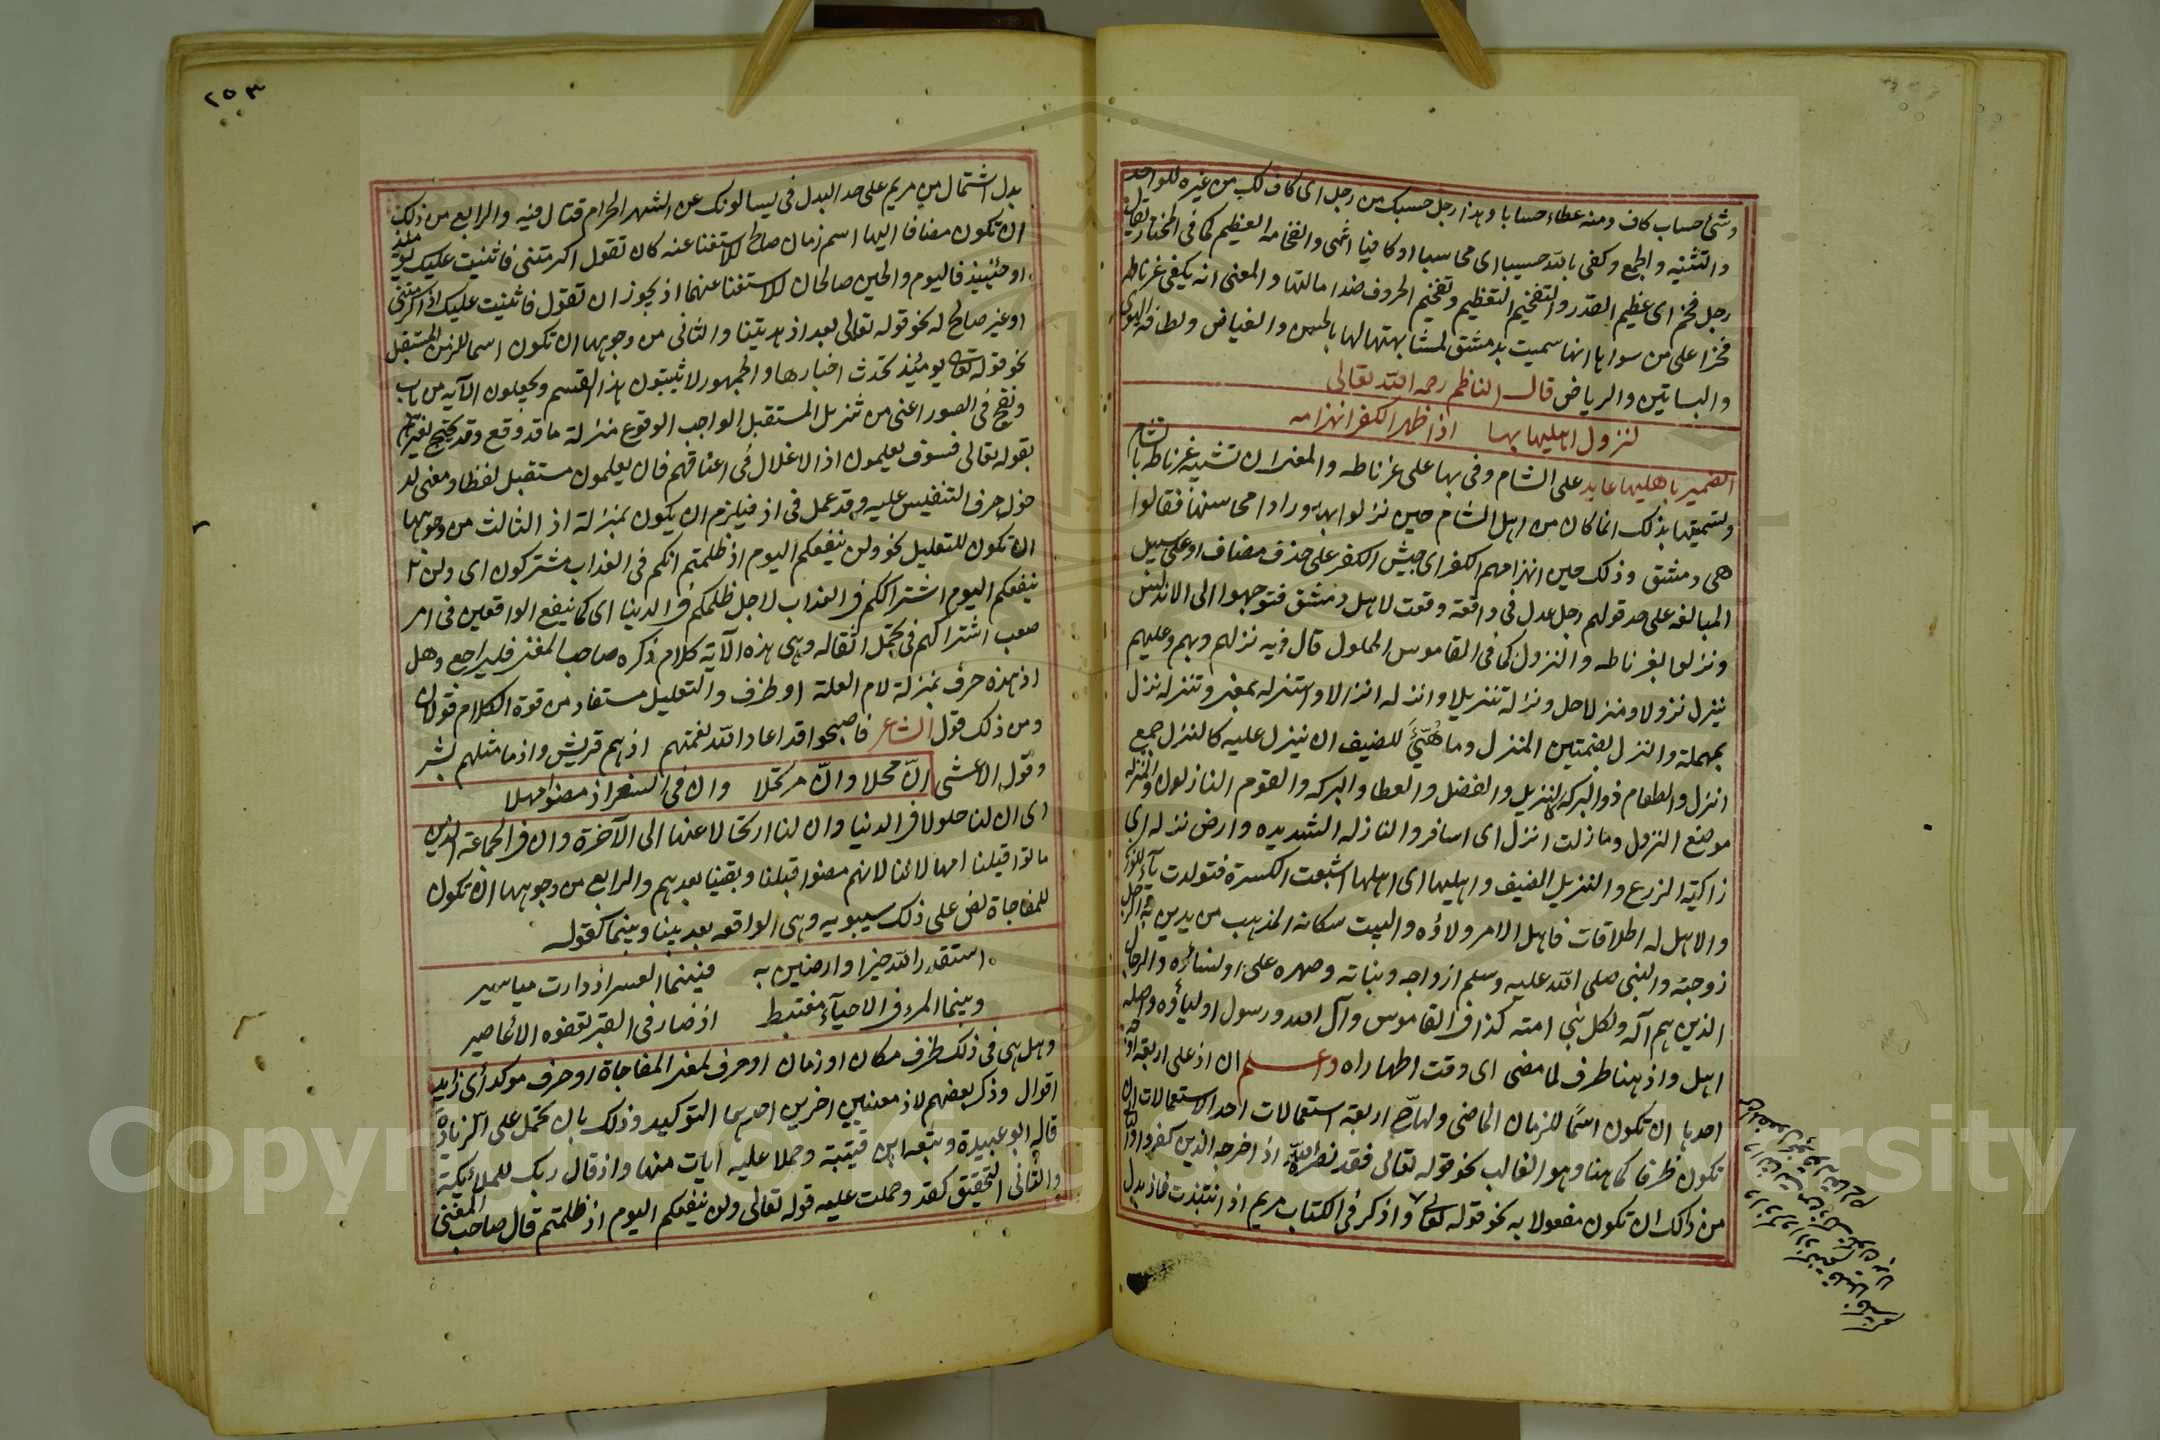 وشئ حساب كاف ومنه عطاء حسابا وهذا رجل حسبك من رجل اى كاف لك من غيره للواحد
والتثنيه والجمع وكفى بالله حسيبا اى محاسبا او كافيا انتهى والفخامه العظيم كما فى المختار يقال
رجل فخم اى عظيم القدر والتفخيم التعظيم وتفخيم الحروف ضد امالتها والمعنى انه يكفى غرناطه
فخرا على من سواها انها سميت بدمشق لمشابهتها لها بالحسن والغياض ولطافة الهوى
والبساتين والرياض قال الناظم رحمه الله تعالى
لنزول اهليها بها اذ اظهر الكفر انهزامه
الضمير باهليها عايد على الشام وفى بها على غرناطه والمعنى ان تشبيه غرناطه بالشام
وتسميتها بذلك انما كان من اهل الشام حين نزلوا بها وراوا محاسنها فقالوا
هى دمشق وذلك حين انهزامهم الكفر اى جيش الكفر على حذف مضاف او على سبيل
المبالغه على حد قولهم رجل عدل فى واقعة وقعت لاهل دمشق فتوجهوا الى الاندلس
ونزلوا بغرناطه والنزول كما فى القاموس الحلول قال فيه نزلهم وبهم وعليهم
ينزل نزولا ومنزلا حل ونزله تنزيلا وانزله انزالا واستنزله بمعنى وتنزله نزل
بمهملة والنزل بضمتين المنزل وما هُيِّئَ للضيف ان ينزل عليه كالنزل جمع
انزل والطعام ذو البركة كالنزيل والفضل والعطا والبركه والقوم النازلون والمنزله
موضع النزول وما زلت انزل اى اسافر والنازله الشديده وارض نزله اى
زاكية الزرع والنزيل الضيف واهليها اى اهلها اشبعت الكسرة فتولدت ياء للوزن
والاهل له اطلاقات فاهل الامر ولاؤه والبيت سكانه المذهب من يدين به والرجل
زوجته والنبى صلى الله عليه وسلم ازواجه وبناته وصهره على او نساؤه والرجال
الذين هم آله ولكل نبى امته كذا فى القاموس وآل الله ورسول اولياؤه واصله
اهل واذ هنا ظرف لما مضى اى وقت اظهاره واعلم ان اذ على اربعة اوجه
احدها ان تكون اسمًا للزمان الماضى ولها ح اربعة استعمالات احد الاستعمالات ان
تكون ظرفا كما هنا وهو الغالب نحو قوله تعالى فقد نصره الله اذ اخرجه الذين كفروا والثانى
من ذلك ان تكون مفعولا به نحو قوله تعالى واذكر فى الكتاب مريم اذ انتبذت فاذ بدل
٢٥٣
بدل اشتمال من مريم على حد البدل فى يسالونك عن الشهر الحرام قتال فيه والرابع من ذلك
ان تكون مضافا اليها اسم زمان صالح للاستغنا عنه كان تقول اكرمتنى فاثنيت عليك يومئذ
او حينئذ فاليوم والحين صالحان للاستغنا عنهما اذ يجوز ان تقول فاثنيت عليك اذ اكرمتنى
او غير صالح له نحو قوله تعالى بعد اذ هديتنا والثانى من وجوهها ان تكون اسما للزمن المستقبل
نحو قوله تعالى يومئذ تحدث اخبارها والجمهور لا يثبتون هذا القسم ويجعلون الآيه من باب
ونفخ فى الصور اعنى من تنزيل المستقبل الواجب الوقوع منزلة ما قد وقع وقد يحتج لغيرهم
بقوله تعالى فسوف يعلمون اذ الاغلال فى اعناقهم فان يعلمون مستقبل لفظا ومعنى لد
خول حرف التنفيس عليه وقد عمل فى اذ فيلزم ان يكون بمنزلة اذ الثالث من وجوهها
ان تكون للتعليل نحو ولن ينفعكم اليوم اذ ظلمتم انكم فى العذاب مشتركون اى ولن
ينفعكم اليوم اشتراككم فى العذاب لاجل ظلمكم فى الدينا اى كما ينفع الواقعين فى امر
صعب اشتراكهم فى تحمل اثقاله وهى هذه الآيه كلام ذكره صاحب المغنى فليراجع وهل
اذ هذه حرف بمنزلة لام العلة او ظرف والتعليل مستفاد من قوة الكلام قولان
ومن ذلك قول الشاعر فاصبحوا قد اعاد الله نعمتهم اذ هم قريش واذ ما مثلهم بشر
وقول الاعشى انّ محلا وانّ مرتحلا وان فى السفر اذ مضوا مهلا
اى ان لنا حلولا فى الدنيا وان لنا ارتحالا عنها الى الآخرة وان فى الجماعة الذين
ماتوا قبلنا امهالا لنا لانهم مضوا قبلنا وبقينا بعدهم والرابع من وجوهها ان تكون
للمفاجاة نص على ذلك سيبويه وهى الواقعه بعد بينا وبينما كقوله
استقدر الله خيرا وارضين به فبينما العسر اذ دارت مياسير
وبينما المرء فى الاحياء مغتبط اذ ضار فى القبر تعفوه الاعاصير
وهل هى فى ذلك ظرف مكان او زمان او حرف بمعنى المفاجاة او حرف موكد اى زايد
اقوال وذكر بعضهم لاذ معنيين اخرين احدهما التوكيد وذلك بان تحمل على الزيادة
قاله ابو عبيدة وتبعه ابن قتيبة وحملا عليه آيات منها واذ قال ربك للملائكة
والثانى التحقيق كقد وحملت عليه قوله تعالى ولن ينفعكم اليوم اذ ظلمتم قال صاحب المغنى
Copyright © King Saud University